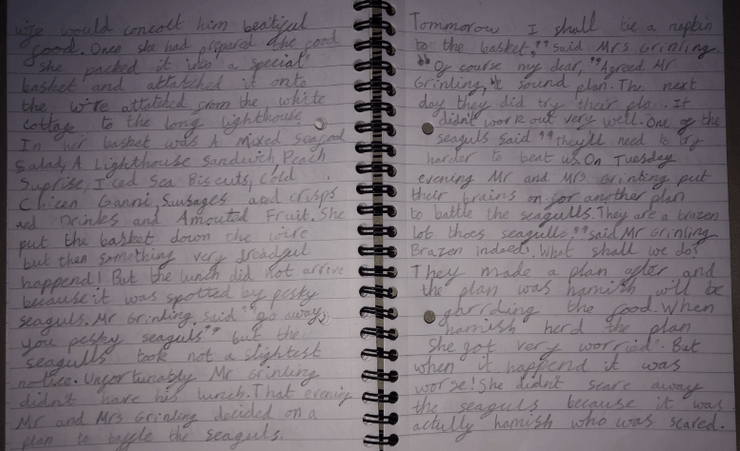 wife would concolt him beatiful
food. Once she had prepared the food
she packed it into a special
basket and attatched it onto
the wire attatched from the white
cottage to the long lighthouse
In her basket was A Mixed Seafood
Salad, A Lighthouse Sandwich, Peach
Suprise, Iced Sea Biscuts, Cold
Chicen Ganni, Sausages and crisps
and Drinks and Amouted Fruit. She
put the basket down the wire
but then something very dreadful
happend! But the lunch did not arrive
because it was spotted by pesky
seaguls. Mr Grinling said "go away
you pesky seaguls" but the
seagulls took not a slightest
notice. Unfortunatly Mr Grinling
didn't have his lunch. That evening
Mr and Mrs Grinling decided on a
plan to baffle the seaguls.
Tommorow I shall tie a napkin
to the basket," said Mrs Grinling.
"Of course my dear, "Agreed Mr
Grinling, sound plan. The next
day they did try their plan. It
didn't work out very well. One of the
seaguls said "They'll need to try
harder to beat us. On Tuesday
evening Mr and Mrs Grinling put
their brains on for another plan
to battle the seagulls. They are a brazen
lot thoes seagulls," said Mr Grinling
Brazen indeed! What shall we do?
They made a plan after and
the plan was hamish will be
gurrding the food. When
hamish herd the plan
She got very worried. But
when it happend it was
worse! She didnt scare away
the seaguls because it was
actully hamish who was scared.